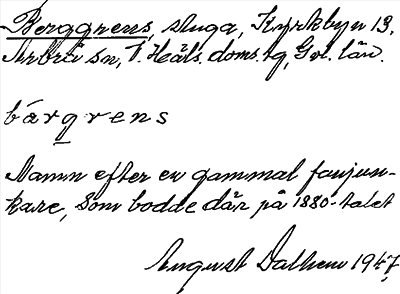 Berggrens, stuga, Kyrkbyn 13,
Arbrå sn, V. Häls. doms. tg, Gvl. län.
bárgrens
Namn efter en gammal fanjun-
kare, som bodde där på 1880-talet
August Dalhem 1947